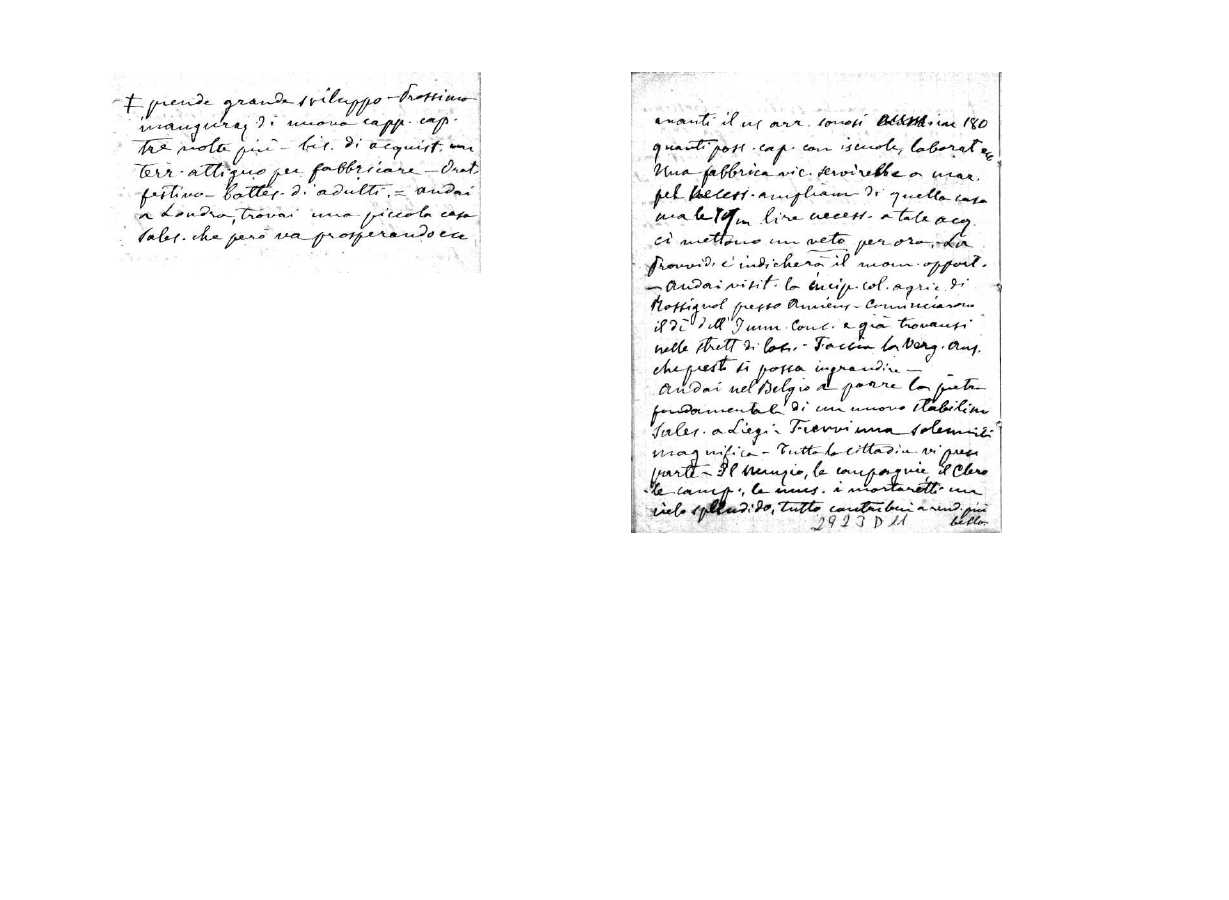 ‡ prende grande sviluppo - Prossima
inauguraz di nuova capp. cap.
tre volte più - bis. di acquist. un
terr. attiguo per fabbricare - Orat
festivo - battes. di adulti. = andai
a Londra, trovai una piccola casa
Sales. che però va prosperando ecc
avanti il ns arr. sonosi in 180
quanti poss. cap. con iscuole, laborat ecc
Una fabbrica vic. servirebbe a mar.
pel necess. ampliam di quella casa
ma le m lire necess. a tale acq.
ci mettono un veto per ora. La
Provvid. c'indicherà il mom. opport.
- Andai visit. la incip. col. agric. di
Rossignol presso Amiens - Cominciarono
il dì dell'Imm. Conc. e già trovansi
nelle strett di loc. - Faccia la Verg. Aus.
che presto si possa ingrandire -
Andai nel Belgio a porre la pietra
fondamentale di un nuovo stabilim
Sales. a Liegi - una solennità
magnifica - Tutta la cittadin vi prese
parte - Il Nunzio, le compagnie, il Clero
le camp., la mus. i mortaretti un
cielo splendido, tutto contribuì a rend. più
bella
2923 D 11